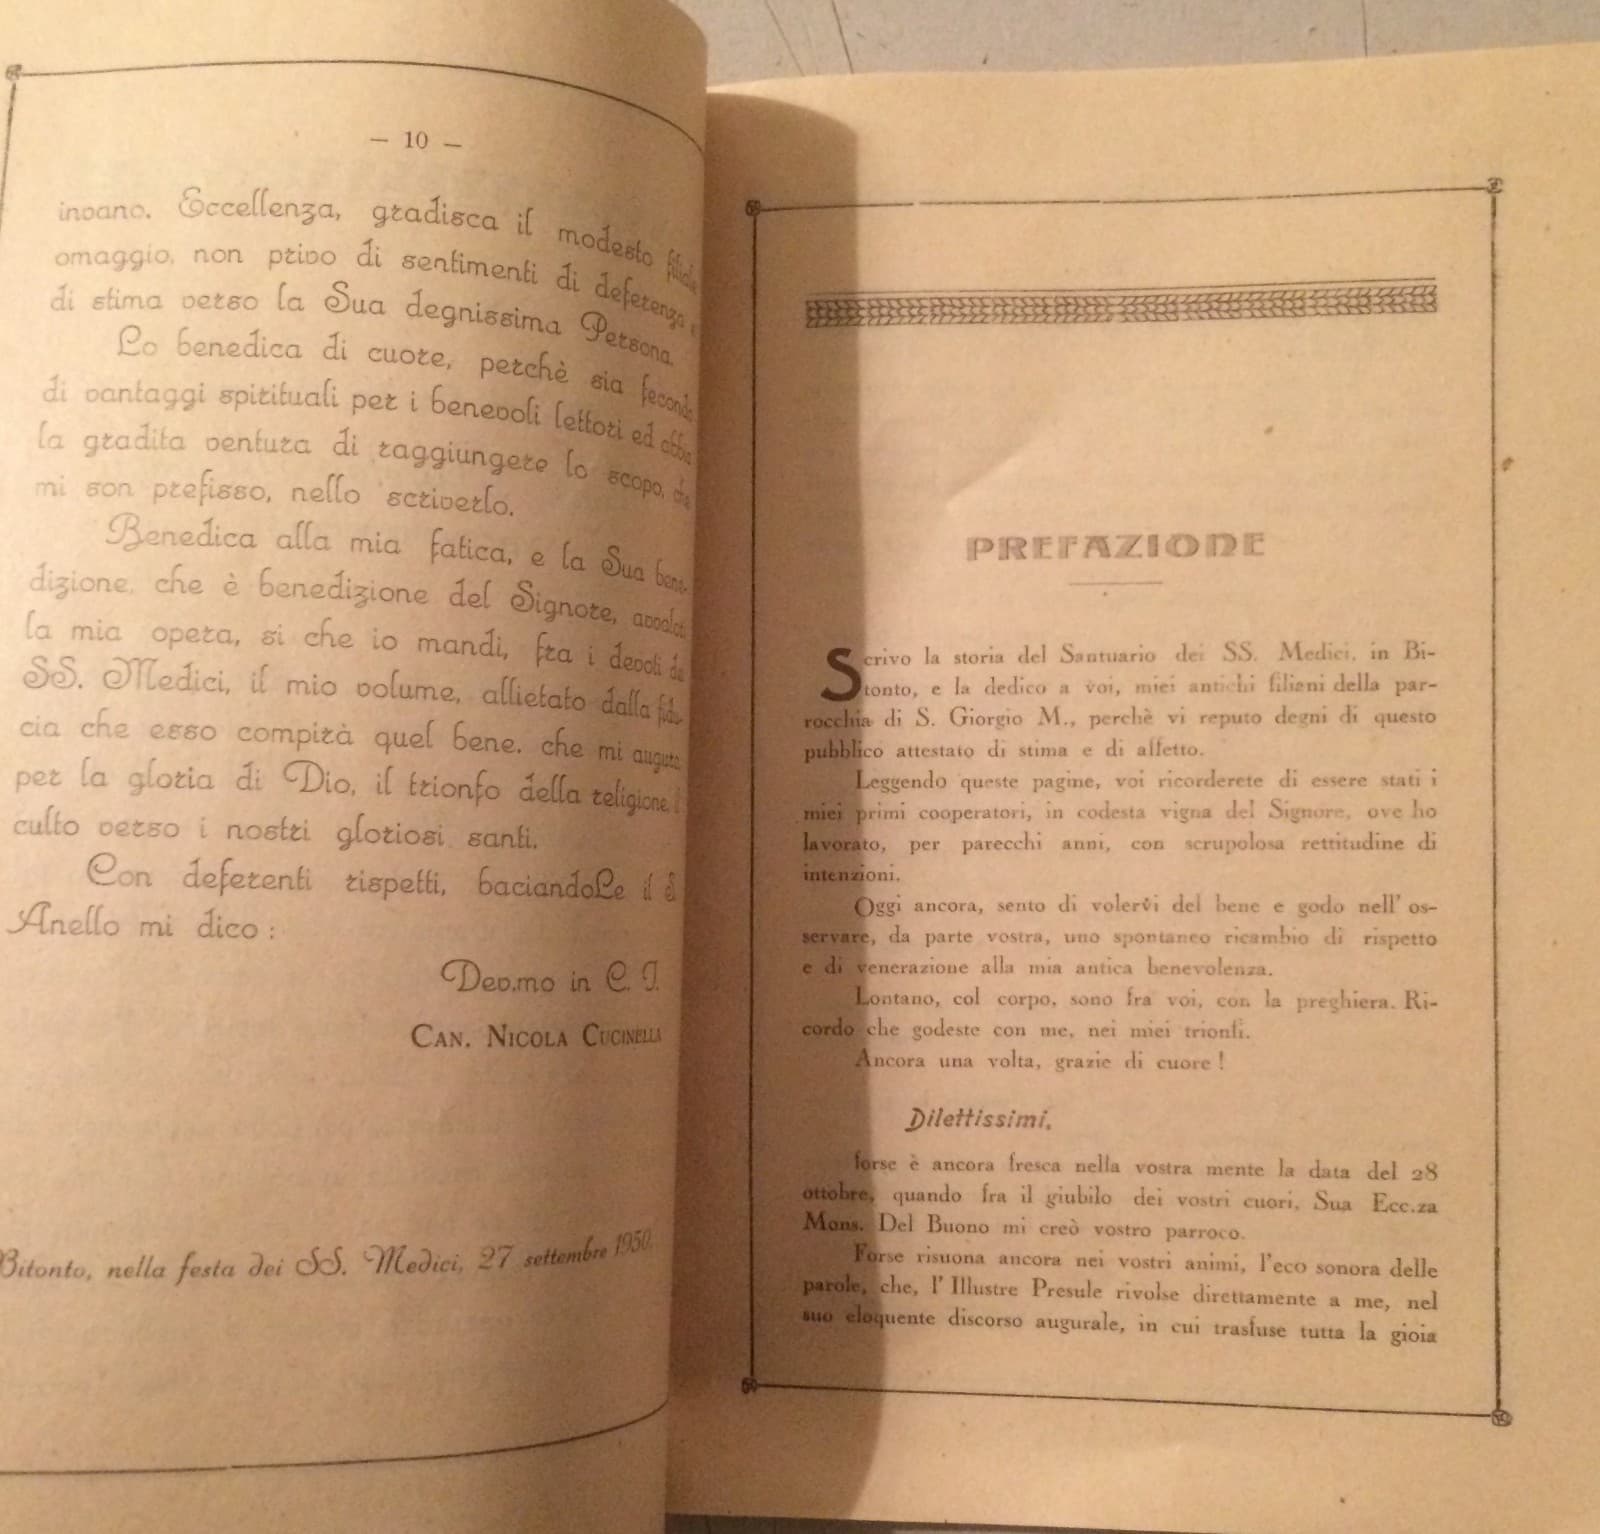 — 10 —
invano. Eccellenza, gradisca il modesto filiale
omaggio, non privo di sentimenti di deferenza e
di stima verso la Sua degnissima Persona.
Lo benedica di cuore, perchè sia fecondo
di vantaggi spirituali per i benevoli lettori ed abbia
la gradita ventura di raggiungere lo scopo, che
mi son prefisso, nello scriverlo.
Benedica alla mia fatica, e la Sua bene-
dizione, che è benedizione del Signore, avvalori
la mia opera, si che io mandi, fra i devoti dei
SS. Medici, il mio volume, allietato dalla fidu-
cia che esso compirà quel bene, che mi auguro
per la gloria di Dio, il trionfo della religione,
culto verso i nostri gloriosi santi.
Con deferenti rispetti, baciandoLe il S
Anello mi dico :
Dev.mo in C. J.
CAN. NICOLA CUCINELLA
Bitonto, nella festa dei SS. Medici, 27 settembre 1950.
PREFAZIONE
Scrivo la storia del Santuario dei SS. Medici, in Bi-
tonto, e la dedico a voi, miei antichi filiani della par-
rocchia di S. Giorgio M., perchè vi reputo degni di questo
pubblico attestato di stima e di affetto.
Leggendo queste pagine, voi ricorderete di essere stati i
miei primi cooperatori, in codesta vigna del Signore, ove ho
lavorato, per parecchi anni, con scrupolosa rettitudine di
intenzioni.
Oggi ancora, sento di volervi del bene e godo nell' os-
servare, da parte vostra, uno spontaneo ricambio di rispetto
e di venerazione alla mia antica benevolenza.
Lontano, col corpo, sono fra voi, con la preghiera. Ri-
cordo che godeste con me, nei miei trionfi.
Ancora una volta, grazie di cuore !
Dilettissimi,
forse è ancora fresca nella vostra mente la data del 28
ottobre, quando fra il giubilo dei vostri cuori, Sua Ecc.za
Mons. Del Buono mi creò vostro parroco.
Forse risuona ancora nei vostri animi, l'eco sonora delle
parole, che, l' Illustre Presule rivolse direttamente a me, nel
suo eloquente discorso augurale, in cui trasfuse tutta la gioia